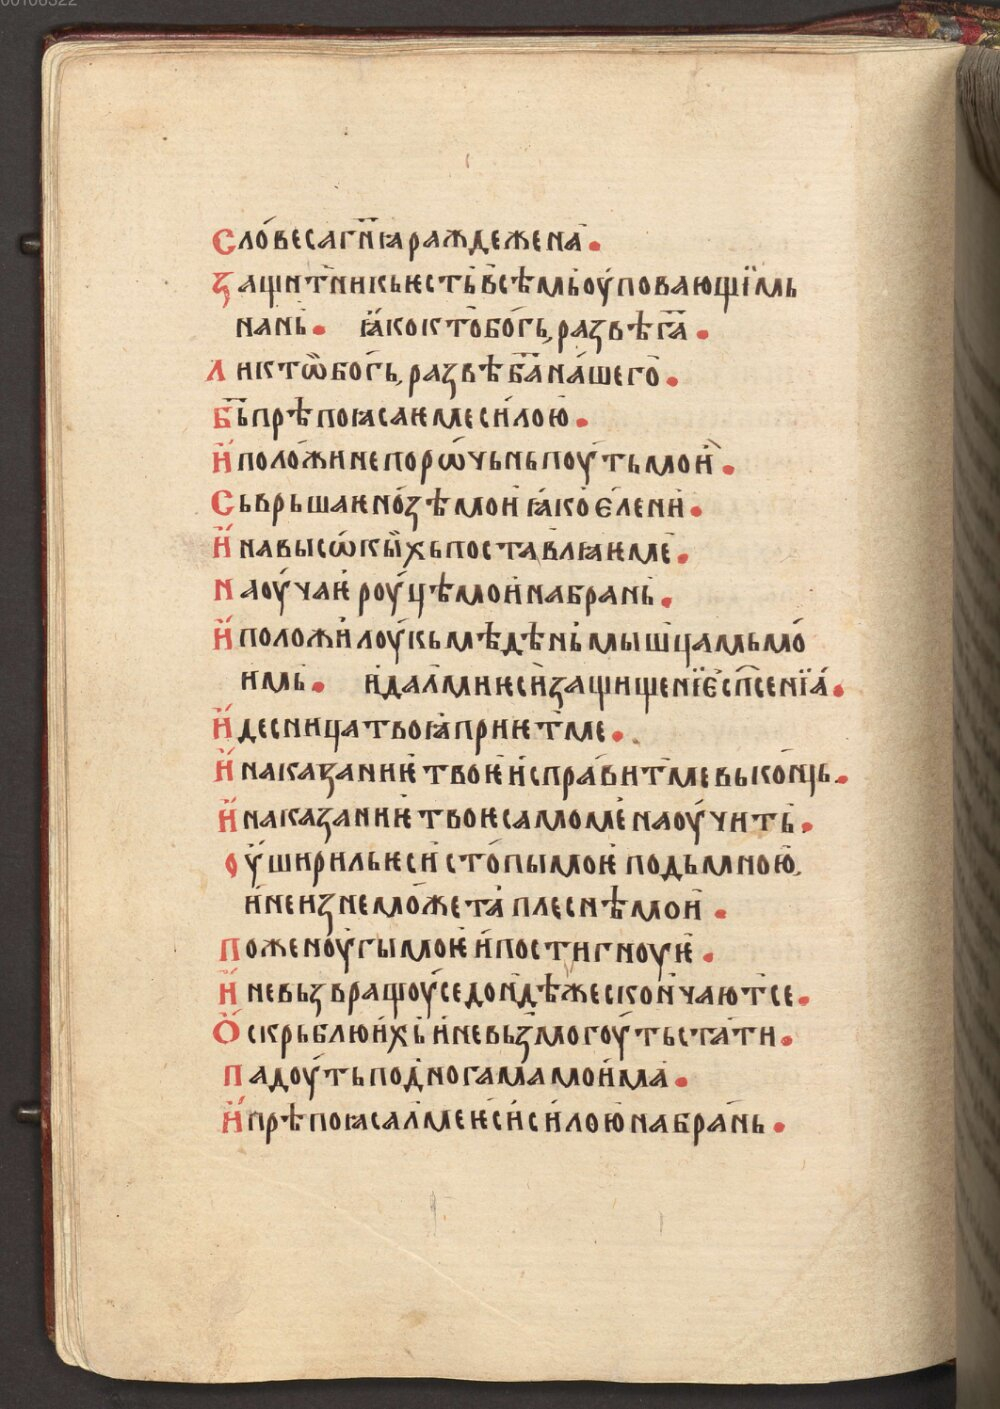 00108322
Сло́весагн҃ꙗражд̾еженꙗ̀.
Защитникьѥсть всѣмьоу҆повающїимь
нань. ꙗ҆коктобогь, развѣ г҃а.
Ликтѡ̀богь, развѣ б҃а на́шего.
Б҃ьпрѣпоꙗсаѥмеси́лою.
И҆положи непорѡ́чьньпоу́тьмои.
Сьврьшаѥно́зѣмои ꙗ҆ко є҆лени.
И҆ на высѡ́кыихьпоставлꙗѥме.
Наоу҆чаѥ роу́цѣмои на брань.
И҆положи лоу́кьмѣдѣнь мышцамьмо́
имь. и҆далмиѥси защищенїе сп҃сенїа́.
И҆десницатвоꙗ прїиѥтме.
И҆наказаниѥ твоѥ исправитмевьконць.
И҆наказаниѥ твоѥсамомѐнаоу́чить.
Оу҆ширильѥси сто́пымоѥ подьмною,
и҆неизнеможета плеснѣмои.
Поженоу́гымоѥ и҆постигноуѥ.
И҆невьзвращоу́седондѣжесконьчаютсе.
Ѡ҆скрьблюихь и҆невьзмогоу́тьстати.
Падоу́тьподногамамои́ма.
И҆прѣпоꙗсалмеѥси си́лоюнабра́нь.